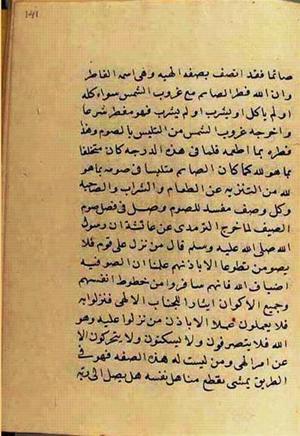 صائما فقد اتصف بصفة الهيه وهى اسمه الفاطر
وان الله فطر الصائم مع غروب الشمس سواء اكله
او لم ياكل او يشرب او لم يشرب فهو مفطر شرعا
واخرجه غروب الشمس من التلبس بالصوم وهذا
فطره بما اطعمه فلما فى هذه الدرجه كان متخلقا
بما هو لله كما كان الصائم متلبسا فى صومه بما هو
لله من التنزيه عن الطعام والشراب والصاحبة
وكل وصف مفسد للصوم وصل فى فصل صوم
الضيف لما خرج الترمذى عن عائشة ان رسول
الله صلى الله عليه وسلم قال من نزل على قوم فلا
يصومن تطوعا الا باذنهم علمنا ان الصوفيه
اضياف الله فانهم سافروا من حظوظ انفسهم
وجميع الاكوان ايثارا للجناب الالهى فنزلوا به
فلا يعملون عملا الا باذن من نزلوا عليه وهو
الله فلا يتصرفون ولا يسكنون ولا يتحركون الا
عن امر الهى ومن ليست له هذه الصفه فهو فى
الطريق يمشى يقطع مناهل نفسه هل يصل الى ربه